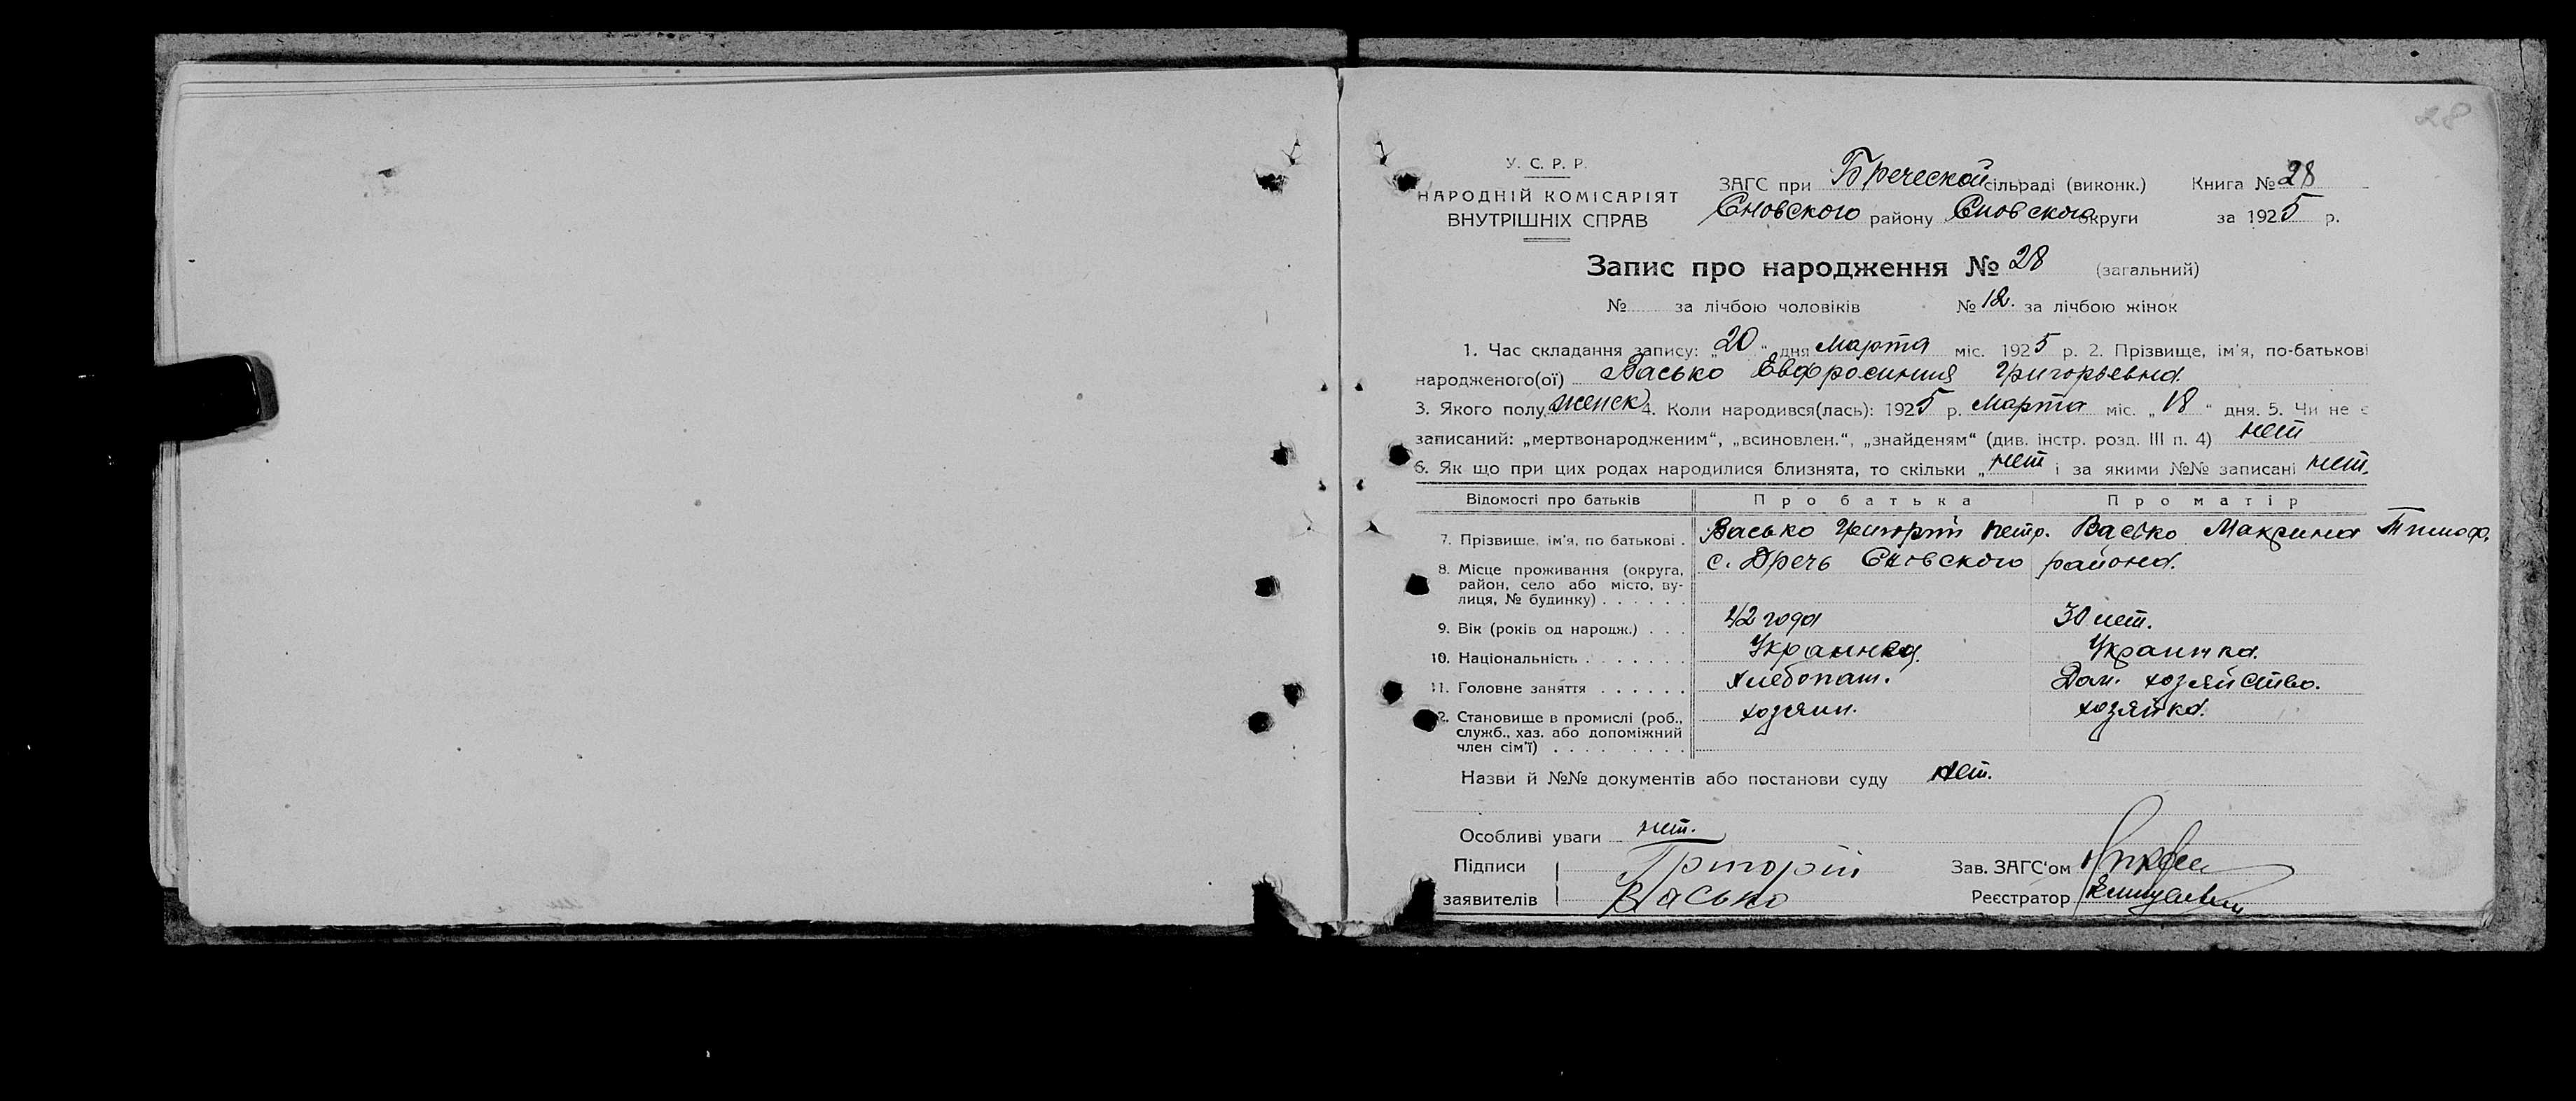 28
У. С. Р. Р.
НАРОДНІЙ КОМІСАРІЯТ
ВНУТРІШНІХ СПРАВ
ЗАГС при Бреческой сільраді (виконк.) Книга № 28
Сновского району Сновского округи за 1925 р.
Запис про народження № 28 (загальний)
№ за лічбою чоловіків № 12. за лічбою жінок
1. Час складання запису: „20“ дня Марта міс. 1925 р. 2. Прізвище, ім'я, по-батькові
народженого(ої) Васько Евфросиния Григорьевна.
3. Якого полу женск 4. Коли народився(лась): 1925 р. Марта міс. „18“ дня. 5. Чи не є
записаний: „мертвонародженим“, „всиновлен.“, „знайденям“ (див. інстр. розд. III п. 4) нет
6. Як що при цих родах народилися близнята, то скільки „нет і за якими №№ записані нет.
Відомості про батьків Про батька Про матір
7. Прізвище, ім'я, по батькові . Васько Григорій Петр. Васько Макрина Тимоф.
8. Місце проживання (округа, с. Бречь Сновского района.
район, село або місто, ву-
лиця, № будинку) . . . . . .
9. Вік (років од народж.) . . . 42 года 30 лет.
10. Національність . . . . . . . Украинец. Украинка.
11. Головне заняття . . . . . . хлебопаш. Дом. хозяйство.
12. Становище в промислі (роб., хозяин. хозяйка.
служб., хаз. або допоміжний
член сім'ї) . . . . . . . . .
Назви й №№ документів або постанови суду нет.
Особливі уваги нет.
Підписи Григорій Зав. ЗАГС'ом
заявителів Васько Реєстратор